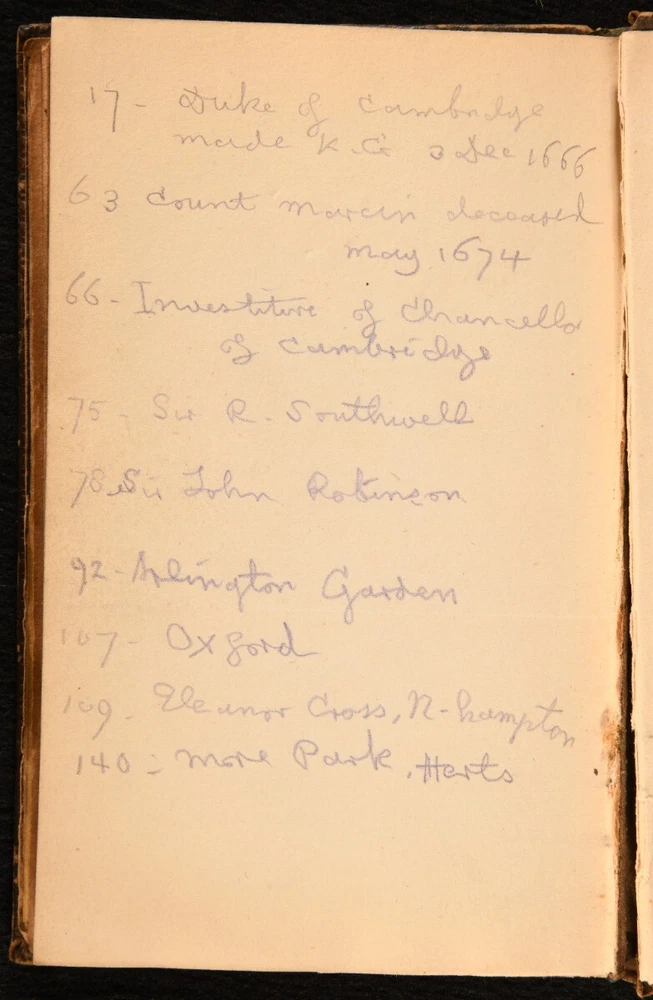 17- Duke of Cambridge
made K.G 3 Dec 1666
63 Count Marcin deceased
May 1674
66- Investiture of Chancellor
of Cambridge
75- Sir R. Southwell
78 Sir John Robinson
92- Arlington Garden
107- Oxford
109- Eleanor Cross, N-hampton
140- More Park, Herts